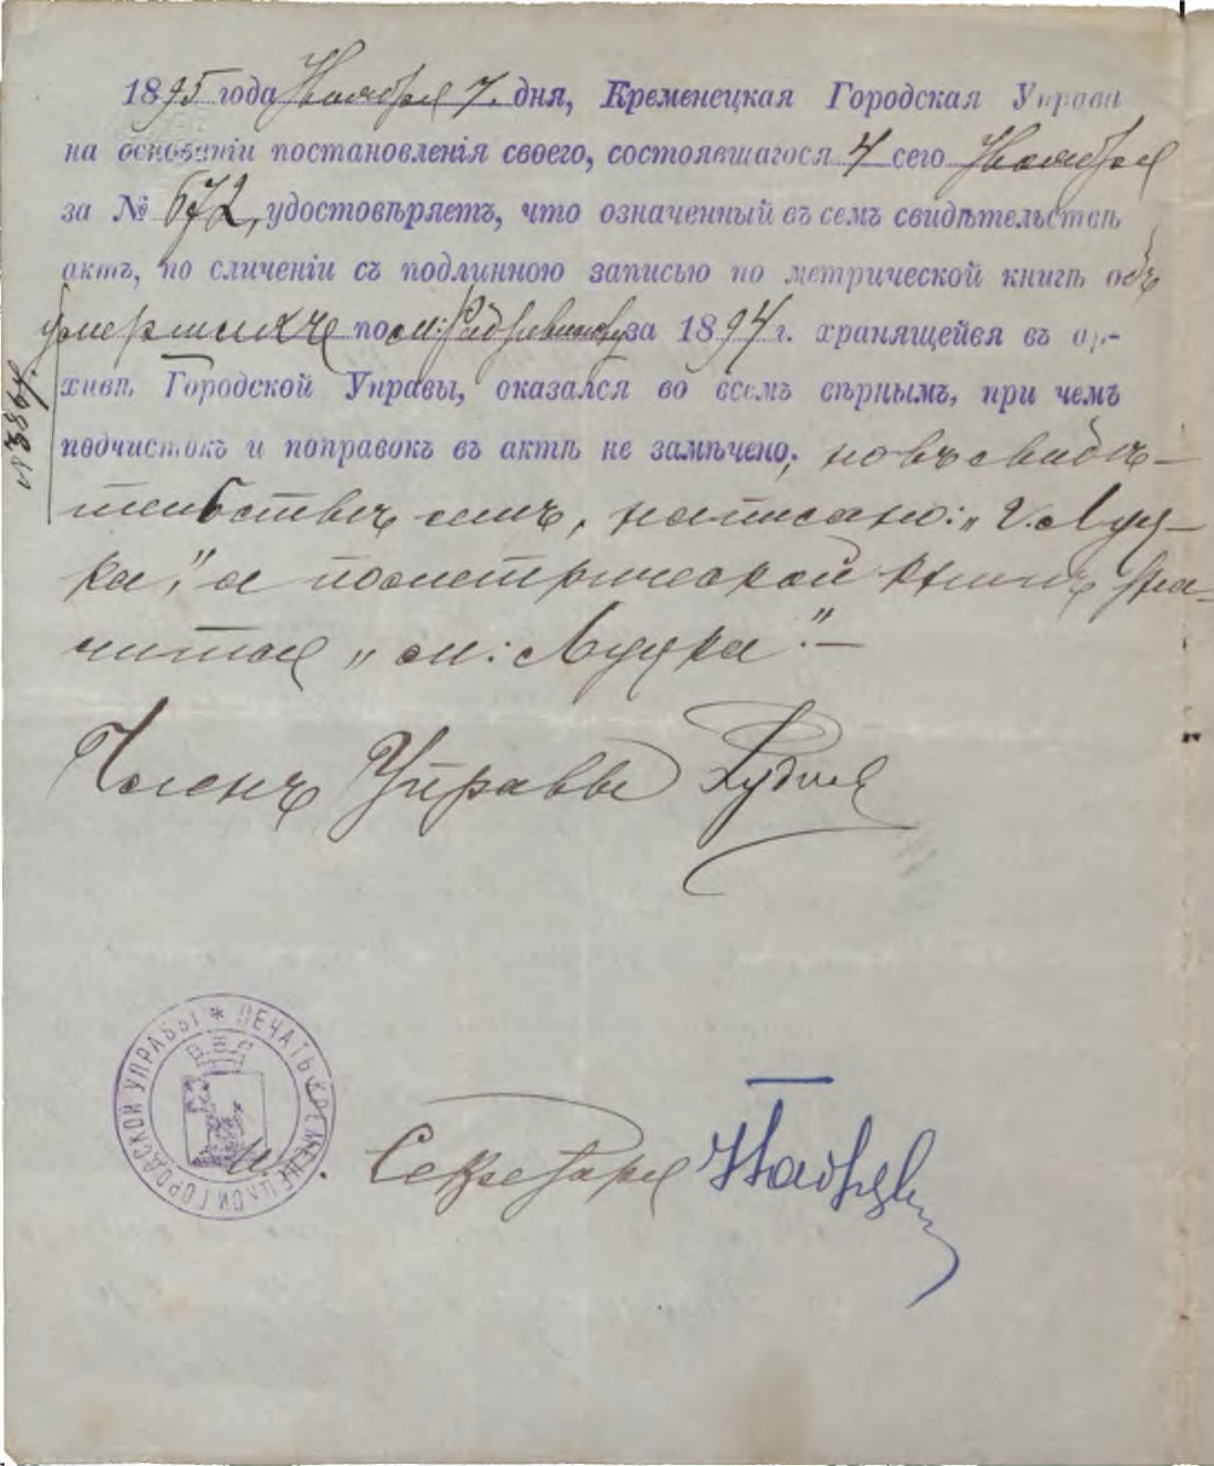 1895 года Ноября 7. дня, Кременецкая Городская Управа
на основаніи постановленія своего, состоявшагося 4 сего Ноября
за № 672, удостовѣряетъ, что означенный въ семъ свидѣтельствѣ
актъ, по сличеніи съ подлинною записью по метрической книгѣ объ
умершихъ по м: Радзивилову за 1894 г. хранящейся въ ар-
хивѣ Городской Управы, оказался во всемъ вѣрнымъ, при чемъ
подчистокъ и поправокъ въ актѣ не замѣчено; но въ свидѣ-
тельствѣ семъ, написано: „г. Луц-
ка," а по метрической книгѣ зна-
чится „м: Луцка".—
Членъ Управы
ПЕЧАТЬ КРЕМЕНЕЦКОЙ ГОРОДСКОЙ УПРАВЫ
И. Секретаря